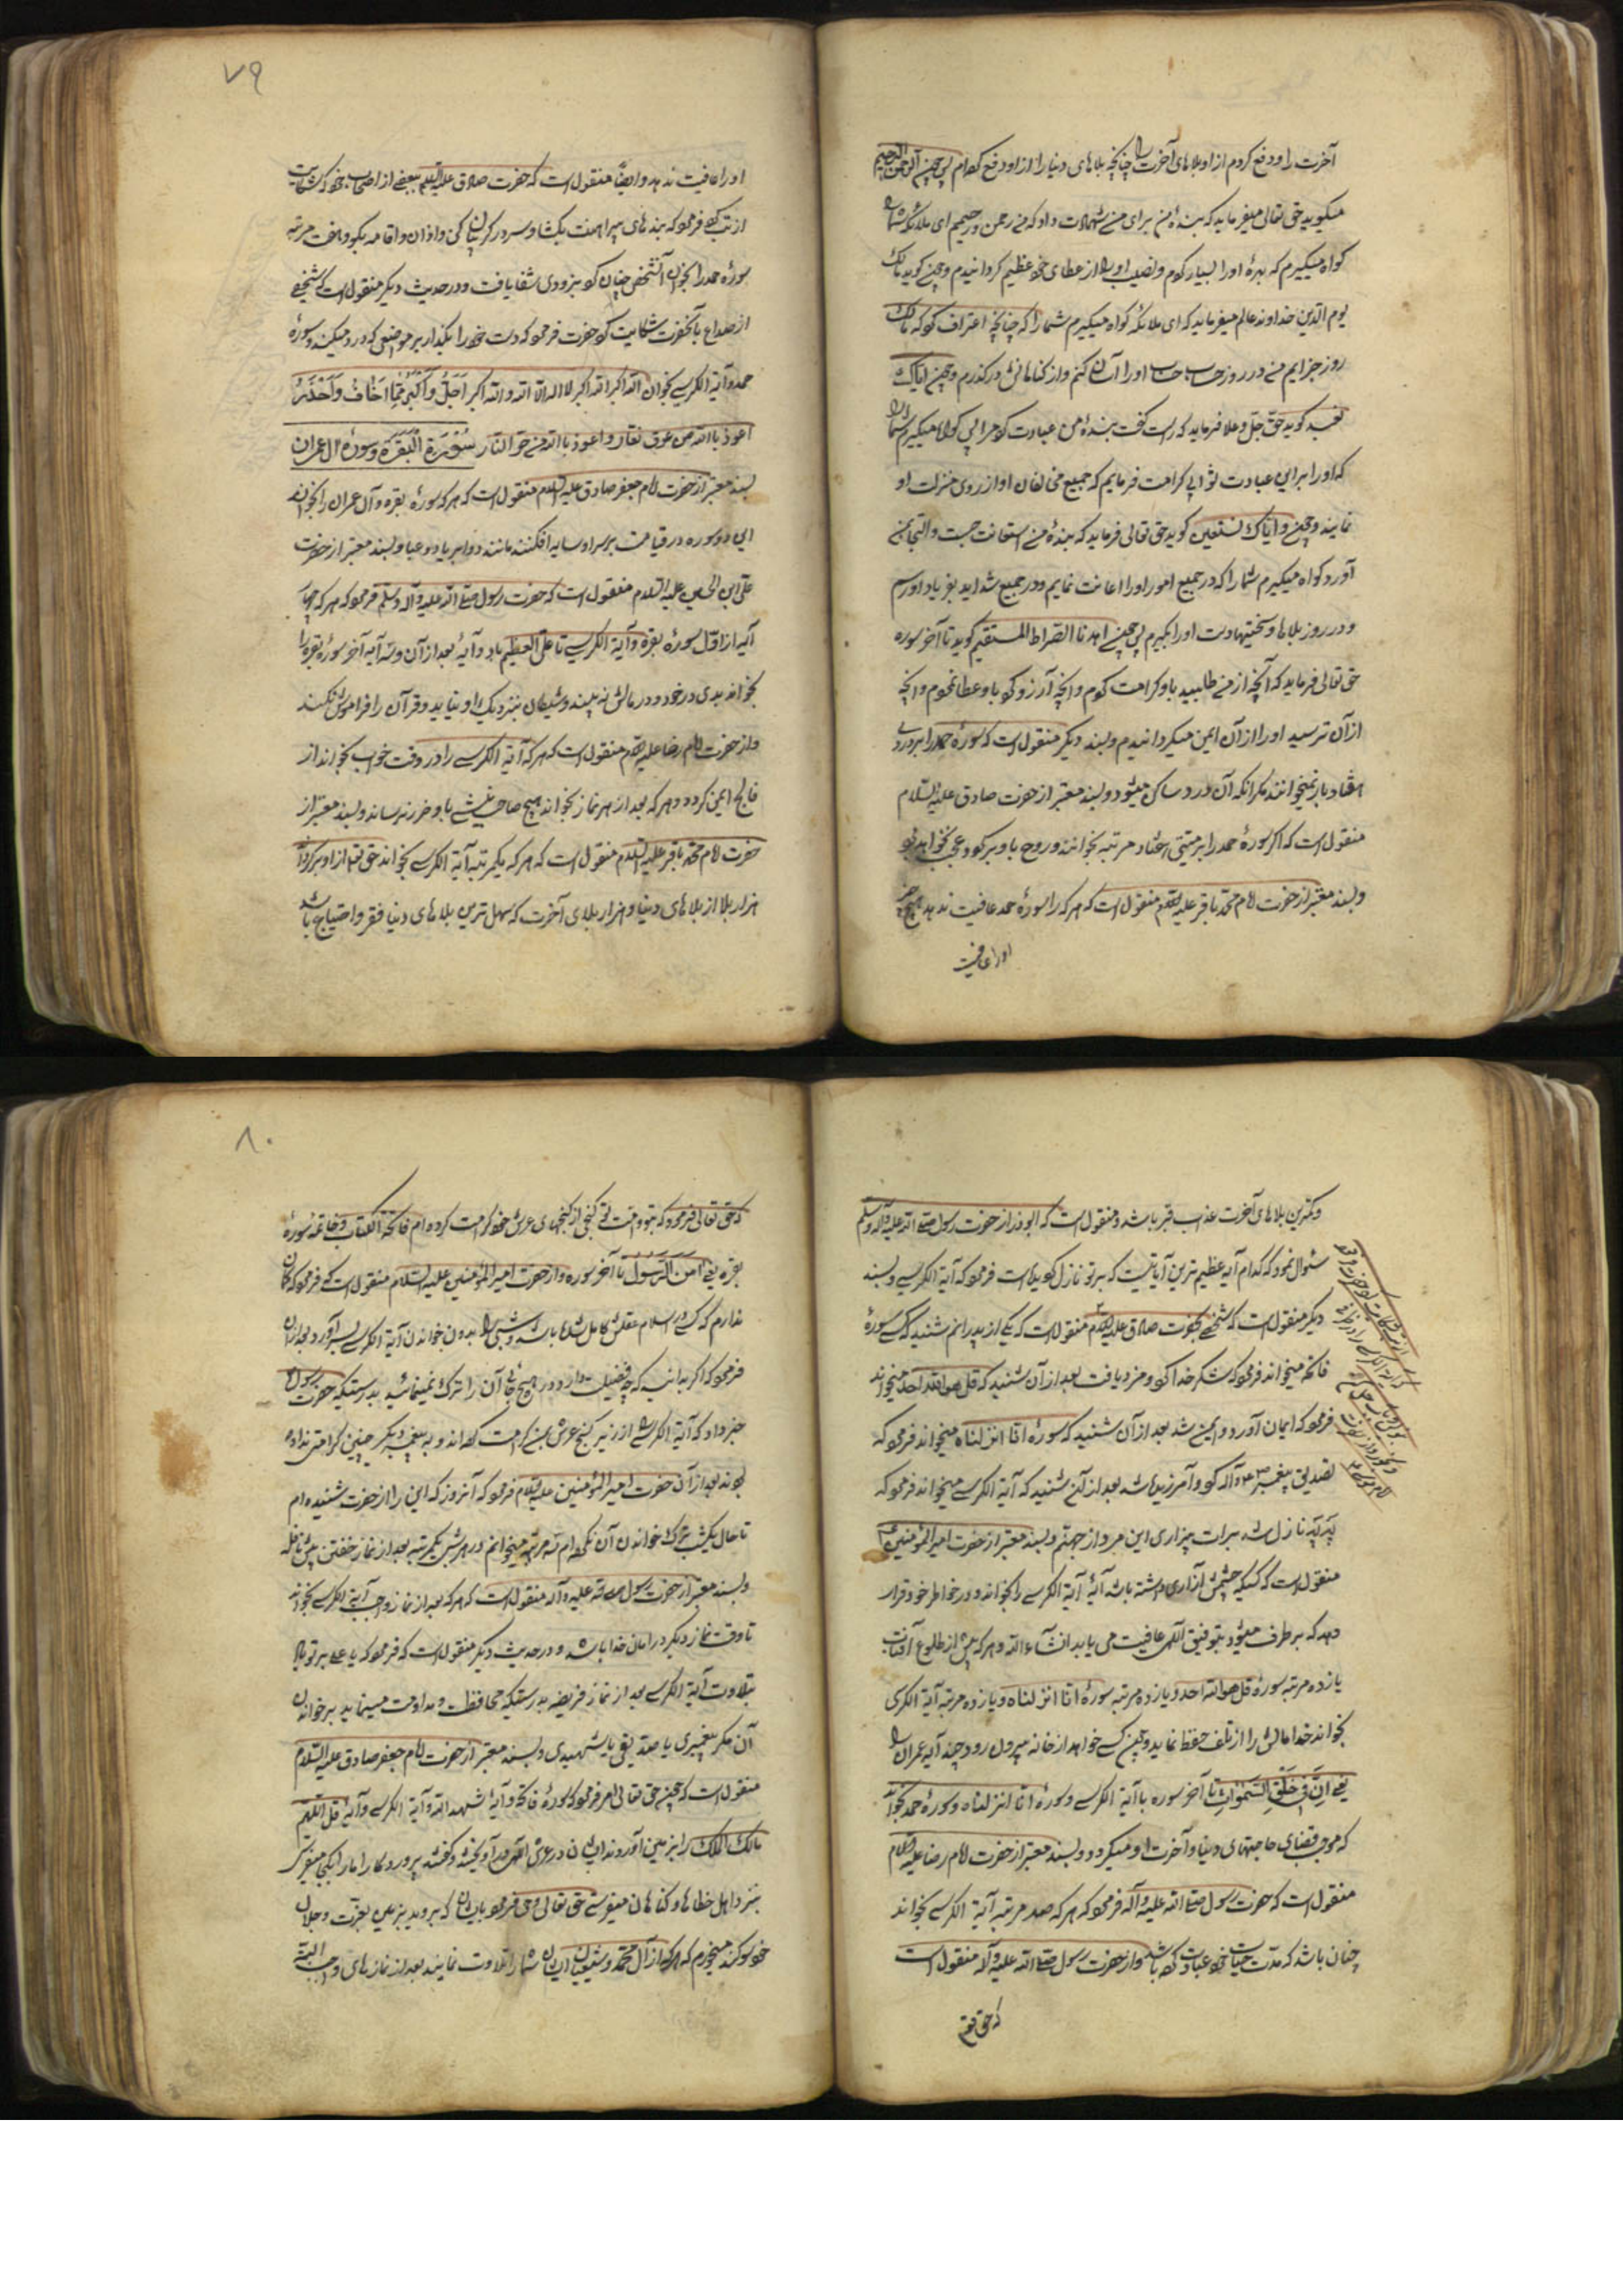 آخرت را و دفع کردم از او بلاهای آخرت را چنانچه بلاهای دنیا را از او دفع کرده‌ام پس چون الرحمن الرحیم
میگوید حق تعالی میفرماید که بنده من برای من شهادت داد که من رحمن و رحیمم ای ملائکه شما را
گواه میگیرم که بهرۀ او را بسیار کنم و نصیب او را از عطای خود عظیم گردانیدم و چون گوید مالک
یوم الدین خداوند عالم میفرماید که ای ملائکه گواه میگیرم شما را که چنانچه اعتراف کرد که مالک
روز جزا منم در روز حساب حساب او را آسان کنم و از گناهانش درگذرم و چون ایاک
نعبد گوید حق جل و علا فرماید که راست گفت بندۀ من عبادت کرد مرا پس گواه میگیرم شما را
که او را بر این عبادت ثوابی کرامت فرمایم که جمیع مخالفان او آرزوی منزلت او
نمایند و چون و ایاک نستعین گوید حق تعالی فرماید که بندۀ من استعانت جست و التجا بمن
آورد گواه میگیرم شما را که در جمیع امور او را اعانت نمایم و در جمیع شداید بفریاد او رسم
و در روز بلاها و سختیها دست او را بگیرم پس چون اهدنا الصراط المستقیم گوید تا آخر سوره
حق تعالی فرماید که آنچه از من طلبید باو کرامت کردم و آنچه آرزو کرد باو عطا نمودم و آنچه
از آن ترسید او را از آن ایمن گردانیدم و بسند دیگر منقول است که سورۀ حمد را بر دردی
هفتاد بار نمیخوانند مگر آنکه آن درد ساکن میشود و بسند معتبر از حضرت صادق علیه السلام
منقول است که اگر سورۀ حمد را بر میتی هفتاد مرتبه بخوانند و روح باو برگردد عجب نخواهد بود
و بسند معتبر از حضرت امام محمد باقر علیه السلام منقول است که هر که را سورۀ حمد عافیت ندهد هیچ چیز
او را عافیت
۷۹
او را عافیت ندهد و ایضاً منقول است که حضرت صادق علیه السلام ببعضی از اصحاب خود که شکایت
از تب کرد فرمود که بندهای پیراهنت بگشا و سر در گریبان کن و اذان و اقامه بگو و هفت مرتبه
سورۀ حمد را بخوان آنشخص چنان کرد بزودی شفا یافت و در حدیث دیگر منقول است که شخصی
از صداع بآنحضرت شکایت کرد حضرت فرمود که دست خود را بگذار بر موضعی که درد میکند و سورۀ
حمد و آیة الکرسی بخوان الله اکبر الله اکبر لا اله الا الله و الله اکبر اجل و اکبر مما اخاف و احذر
اعوذ بالله من عرق نعار و اعوذ بالله من حر النار سورة البقرة و سورۀ آل عمران
بسند معتبر از حضرت امام جعفر صادق علیه السلام منقول است که هر که سورۀ بقره و آل عمران را بخواند
این دو سوره در قیامت بر سر او سایه افکنند مانند دو ابر یا دو عبا و بسند معتبر از حضرت
علی ابن الحسین علیه السلام منقول است که حضرت رسول صلی الله علیه و آله و سلم فرمود که هر که چهار
آیه از اول سورۀ بقره و آیة الکرسی تا علی العظیم با دو آیۀ بعد از آن و سه آیه آخر سورۀ بقره را
بخواند بدی در خود و در مالش نبیند و شیطان بنزدیک او نیاید و قرآن را فراموش نکند
و از حضرت امام رضا علیه السلام منقول است که هر که آیة الکرسی را در وقت خواب بخواند از
فالج ایمن گردد و هر که بعد از هر نماز بخواند هیچ صاحب نیشی باو ضرر نرساند و بسند معتبر از
حضرت امام محمد باقر علیه السلام منقول است که هر که یکمرتبه آیة الکرسی بخواند حق تعالی از او برگرداند
هزار بلا از بلاهای دنیا و هزار بلای آخرت که سهل ترین بلاهای دنیا فقر و احتیاج باشد
و کمترین بلاهای آخرت عذاب قبر باشد و منقول است که ابوذر از حضرت رسول صلی الله علیه و آله و سلم
سئوال نمود که کدام آیه عظیم ترین آیاتیست که بر تو نازل گردیده است فرمود که آیة الکرسی و بسند
دیگر منقول است که شخصی بحضرت صادق علیه السلام منقول است که یکی از پدرانم شنید که کسی سورۀ
فاتحه میخواند فرمود که شکر خدا کرد و مزد یافت بعد از آن شنید که قل هو الله احد میخواند
فرمود که ایمان آورد و ایمن شد بعد از آن شنید که سورۀ انا انزلناه میخواند فرمود که
تصدیق پیغمبر و آله کرد و آمرزیده شد بعد از آن شنید که آیة الکرسی میخواند فرمود که
نازل شد برات بیزاری این مرد از جهنم و بسند معتبر از حضرت امیر المؤمنین
منقول است که کسیکه چشمش آزاری داشته باشد آیۀ آیة الکرسی را بخواند و در خاطر خود قرار
دهد که بر طرف میشود بتوفیق الهی عافیت می یابد انشاء الله و هر که پیش از طلوع آفتاب
یازده مرتبه سورۀ قل هو الله احد و یازده مرتبه سورۀ انا انزلناه و یازده مرتبه آیة الکرسی
بخواند خدا مالش را از تلف حفظ نماید و چون کسی خواهد از خانه بیرون رود چند آیه عمران را
یعنی ان فی خلق السموات تا آخر سوره با آیة الکرسی و سورۀ انا انزلناه و سورۀ حمد بخواند
که موجب قضای حاجتهای دنیا و آخرت او میگردد و بسند معتبر از حضرت امام رضا علیه السلام
منقول است که حضرت رسول صلی الله علیه و آله فرمود که هر که صد مرتبه آیة الکرسی بخواند
چنان باشد که مدت حیات خود عبادت کرده باشد و از حضرت رسول صلی الله علیه و آله منقول است
که حق تعم
۸۰
که حق تعالی فرمود که بتو و امت تو گنجی از گنجهای عرش خود کرامت کرده ام فاتحة الکتاب و خاتمه سورۀ
بقره یعنی آمن الرسول تا آخر سوره و از حضرت امیر المؤمنین علیه السلام منقول است که فرمود که گمان
ندارم که کسی در اسلام عقلش کامل شده باشد و شبی را بدون خواندن آیة الکرسی بسر آورد بعد از آن
فرمود که اگر بدانید که چه فضیلت دارد در هیچ حالی آن را ترک نمینمائید بدرستیکه حضرت رسول
خبر داد که آیة الکرسی از زیر گنج عرش بمن کرامت کرده اند و به پیغمبر دیگر چنین کرامتی نداده
بودند بعد از آن حضرت امیر المؤمنین علیه السلام فرمود که آنروز که این را از حضرت شنیده ام
تا حال یکشب ترک خواندن آن نکرده ام سه مرتبه میخوانم در هر شب یکمرتبه بعد از نماز خفتن پیش نافله
و بسند معتبر از حضرت رسول صلی الله علیه و آله منقول است که هر که بعد از نماز واجب آیة الکرسی بخواند
تا وقت نماز دیگر در امان خدا باشد و در حدیث دیگر منقول است که فرمود که یا علی بر تو باد
بتلاوت آیة الکرسی بعد از نماز فریضه بدرستیکه محافظت و مداومت مینماید بر خواندن
آن مگر پیغمبری یا صدیقی یا شهیدی و بسند معتبر از حضرت امام جعفر صادق علیه السلام
منقول است که چون حق تعالی امر فرمود که سورۀ فاتحه و آیۀ شهد الله و آیة الکرسی و آیۀ قل اللهم
مالک الملک را بزمین آوردند ایشان در عرش الهی در آویختند و گفتند پروردگارا ما را بکجا میفرستی
بنزد اهل خطاها و گناهان میفرستی حق تعالی وحی فرمود بایشان که بروید بزمین بعزت و جلال
خود سوگند میخورم که هر که از آل محمد و شیعیان ایشان شما را تلاوت نمایند بعد از نمازهای واجب البته